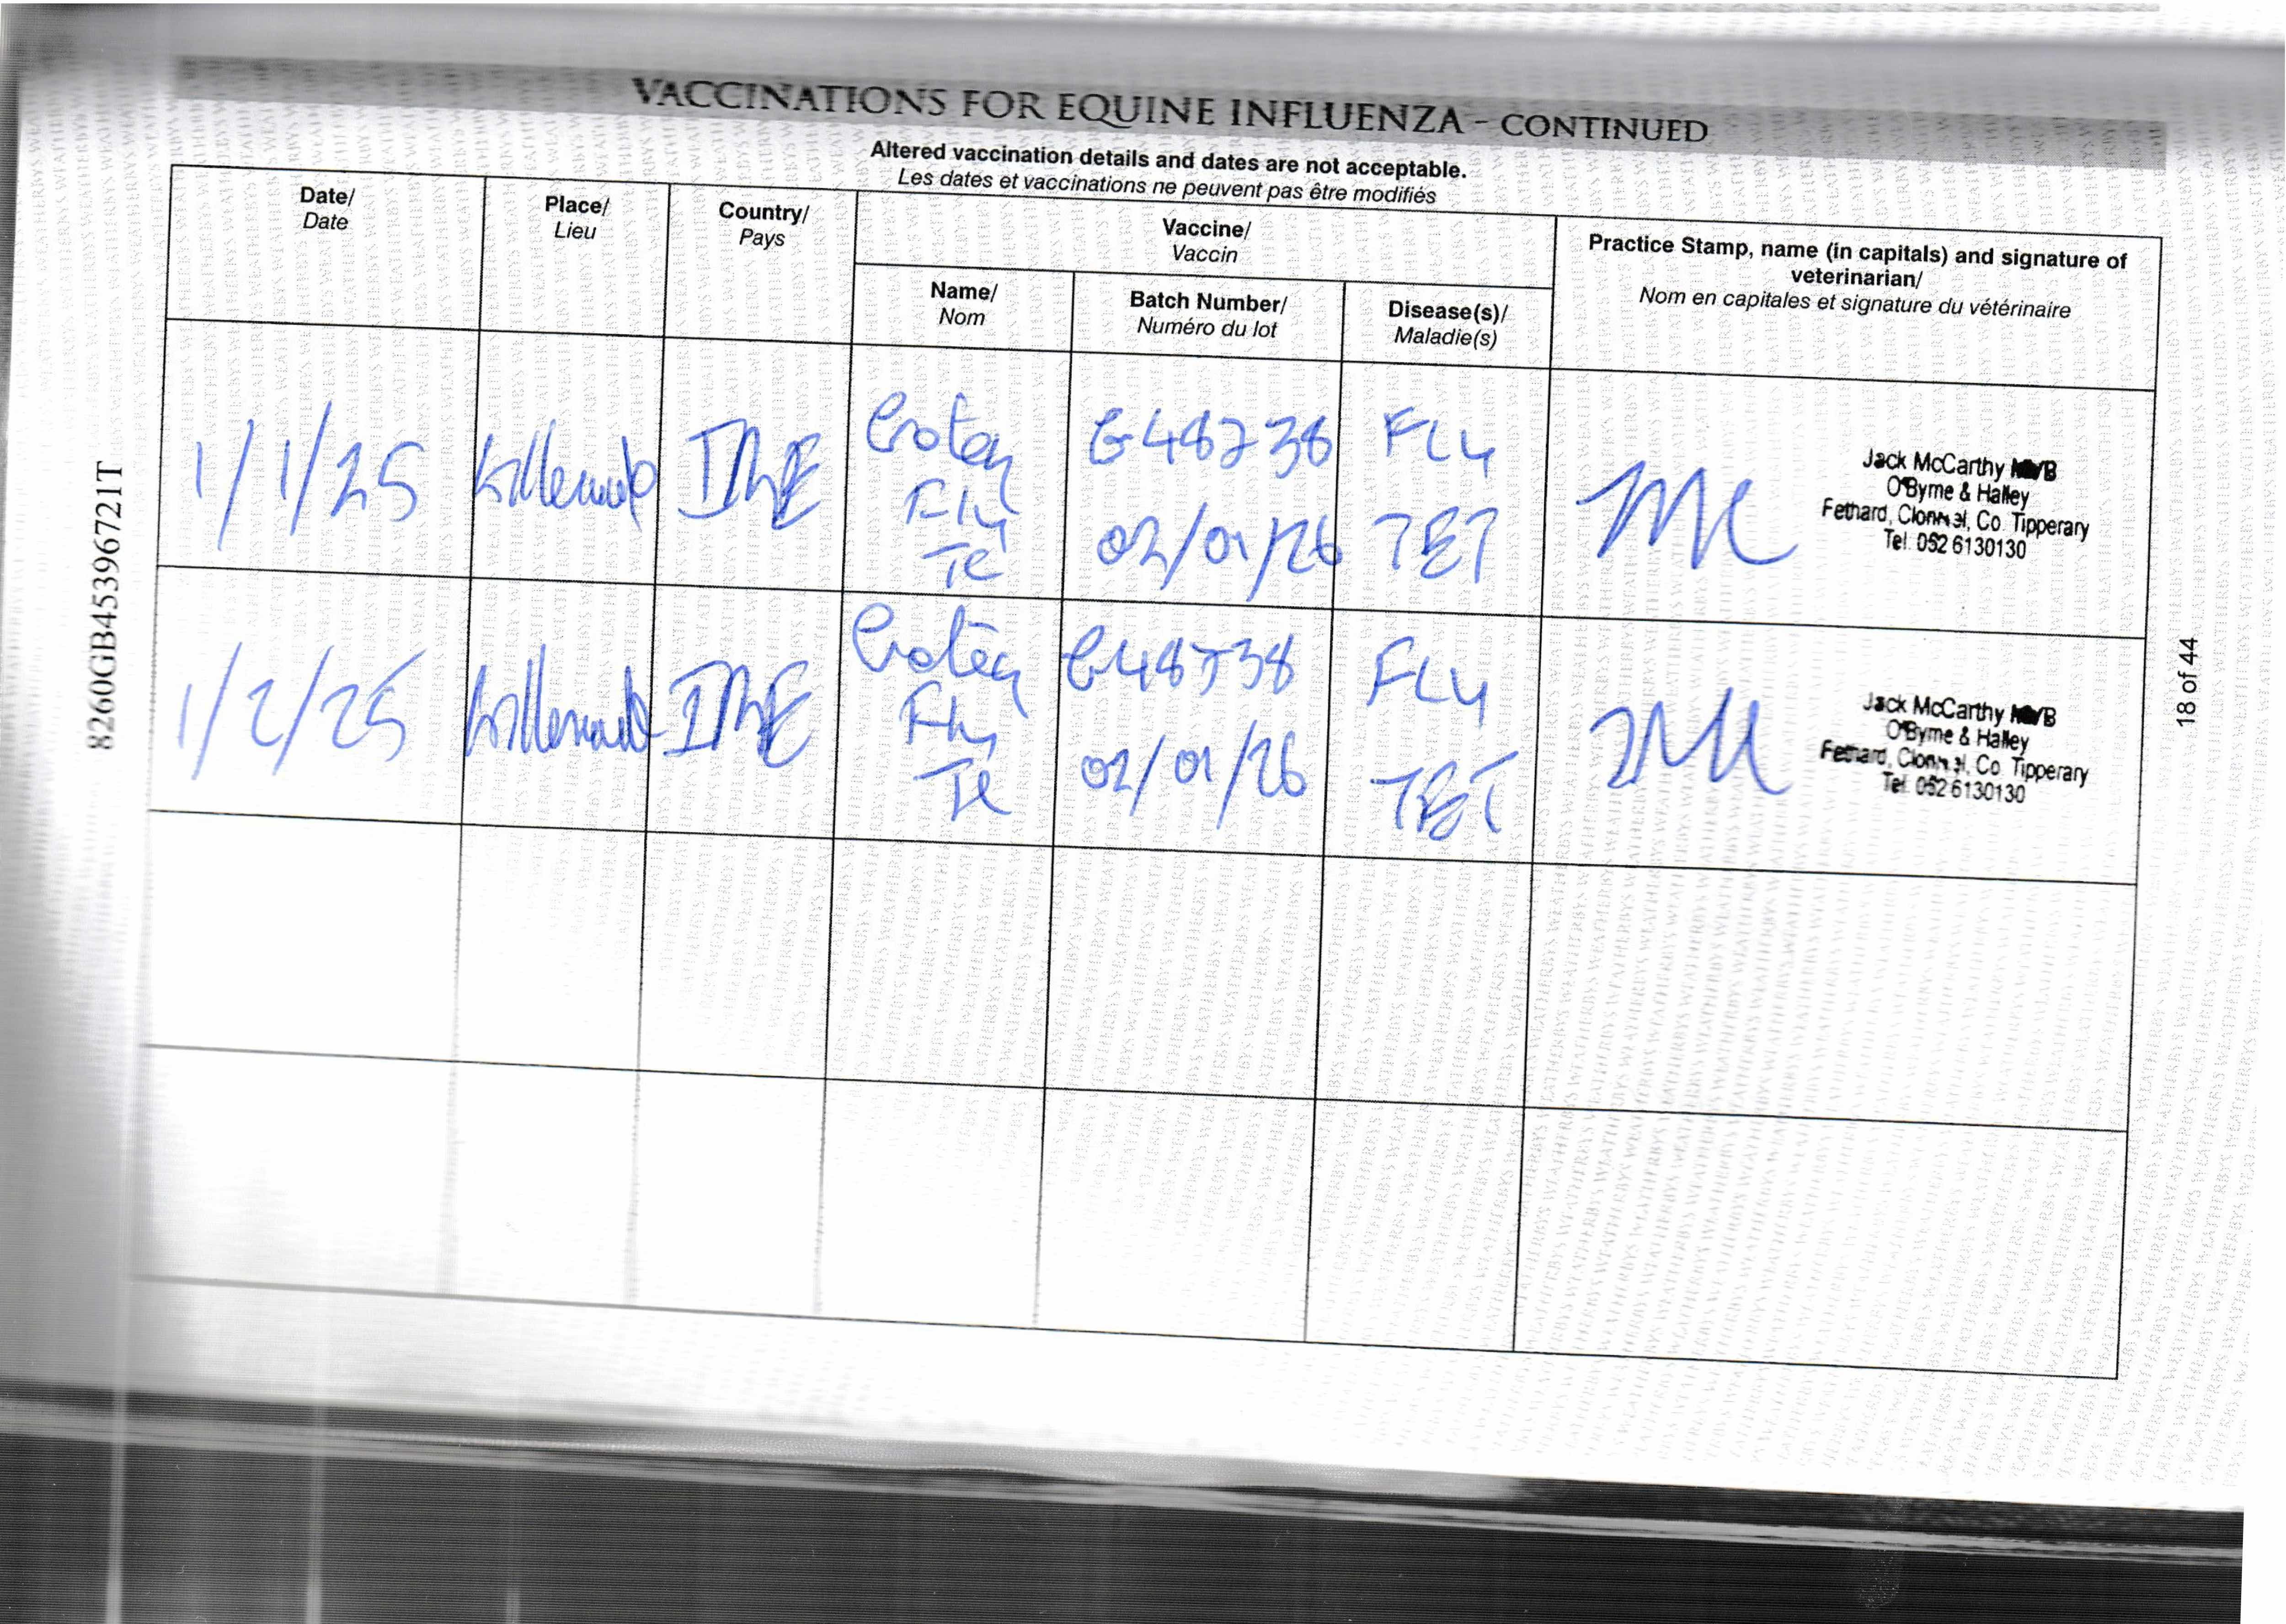 VACCINATIONS FOR EQUINE INFLUENZA - CONTINUED
Altered vaccination details and dates are not acceptable.
Les dates et vaccinations ne peuvent pas être modifiés
Date/
Date
Place/
Lieu
Country/
Pays
Vaccine/
Vaccin
Name/
Nom
Batch Number/
Numéro du lot
Disease(s)/
Maladie(s)
Practice Stamp, name (in capitals) and signature of
veterinarian/
Nom en capitales et signature du vétérinaire
1/1/25
IRE
Flu
Te
02/01/26
FLU
TET
Jack McCarthy MVB
O'Byrne & Halley
Fethard, Clonmel, Co. Tipperary
Tel. 052 6130130
1/2/25
IRE
Flu
Te
02/01/26
FLU
TET
Jack McCarthy MVB
O'Byrne & Halley
Fethard, Clonmel, Co. Tipperary
Tel. 052 6130130
8260GB45396721T
18 of 44